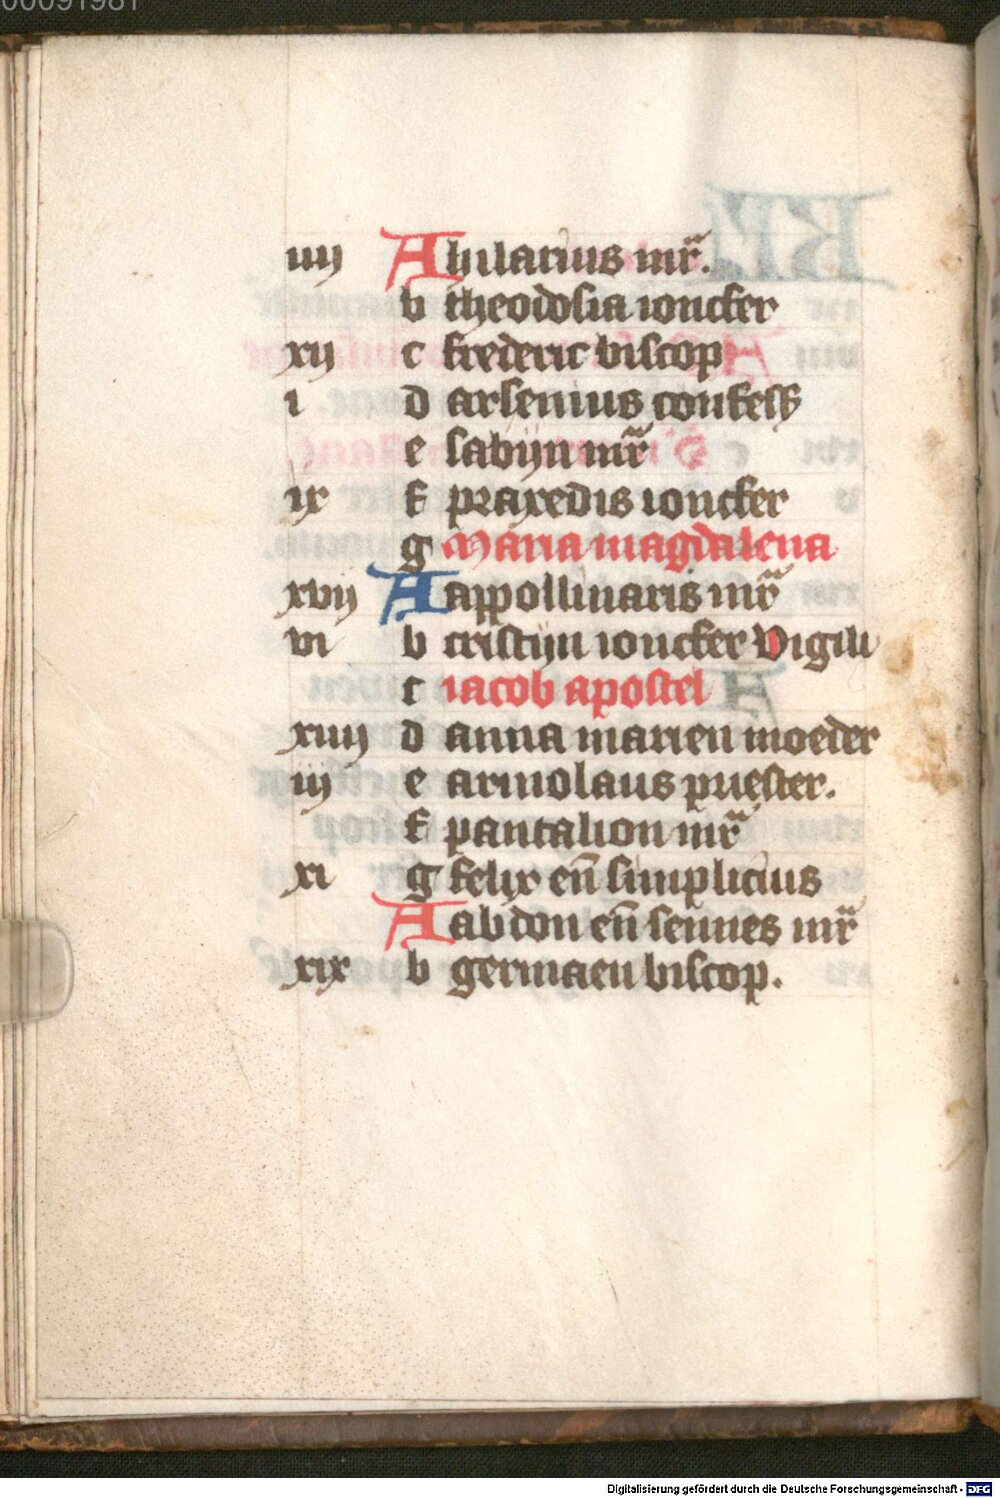 00091981
iiij A hilarius mr̄.
b theodosia ioncfer
xij c frederic biscop
i d arsenius confess
e sabijn mr̄
ix f praxedis ioncfer
g Maria magdalena
xvij A appollinaris mr̄
vi b cristijn ioncfer vigili
c iacob apostel
xiiij d anna marien moeder
iij e armolaus priester.
f pantalion mr̄
xi g felix en̄ simplicius
A abdon en̄ sennes mr̄
xix b germaen biscop.
Digitalisierung gefördert durch die Deutsche Forschungsgemeinschaft - DFG